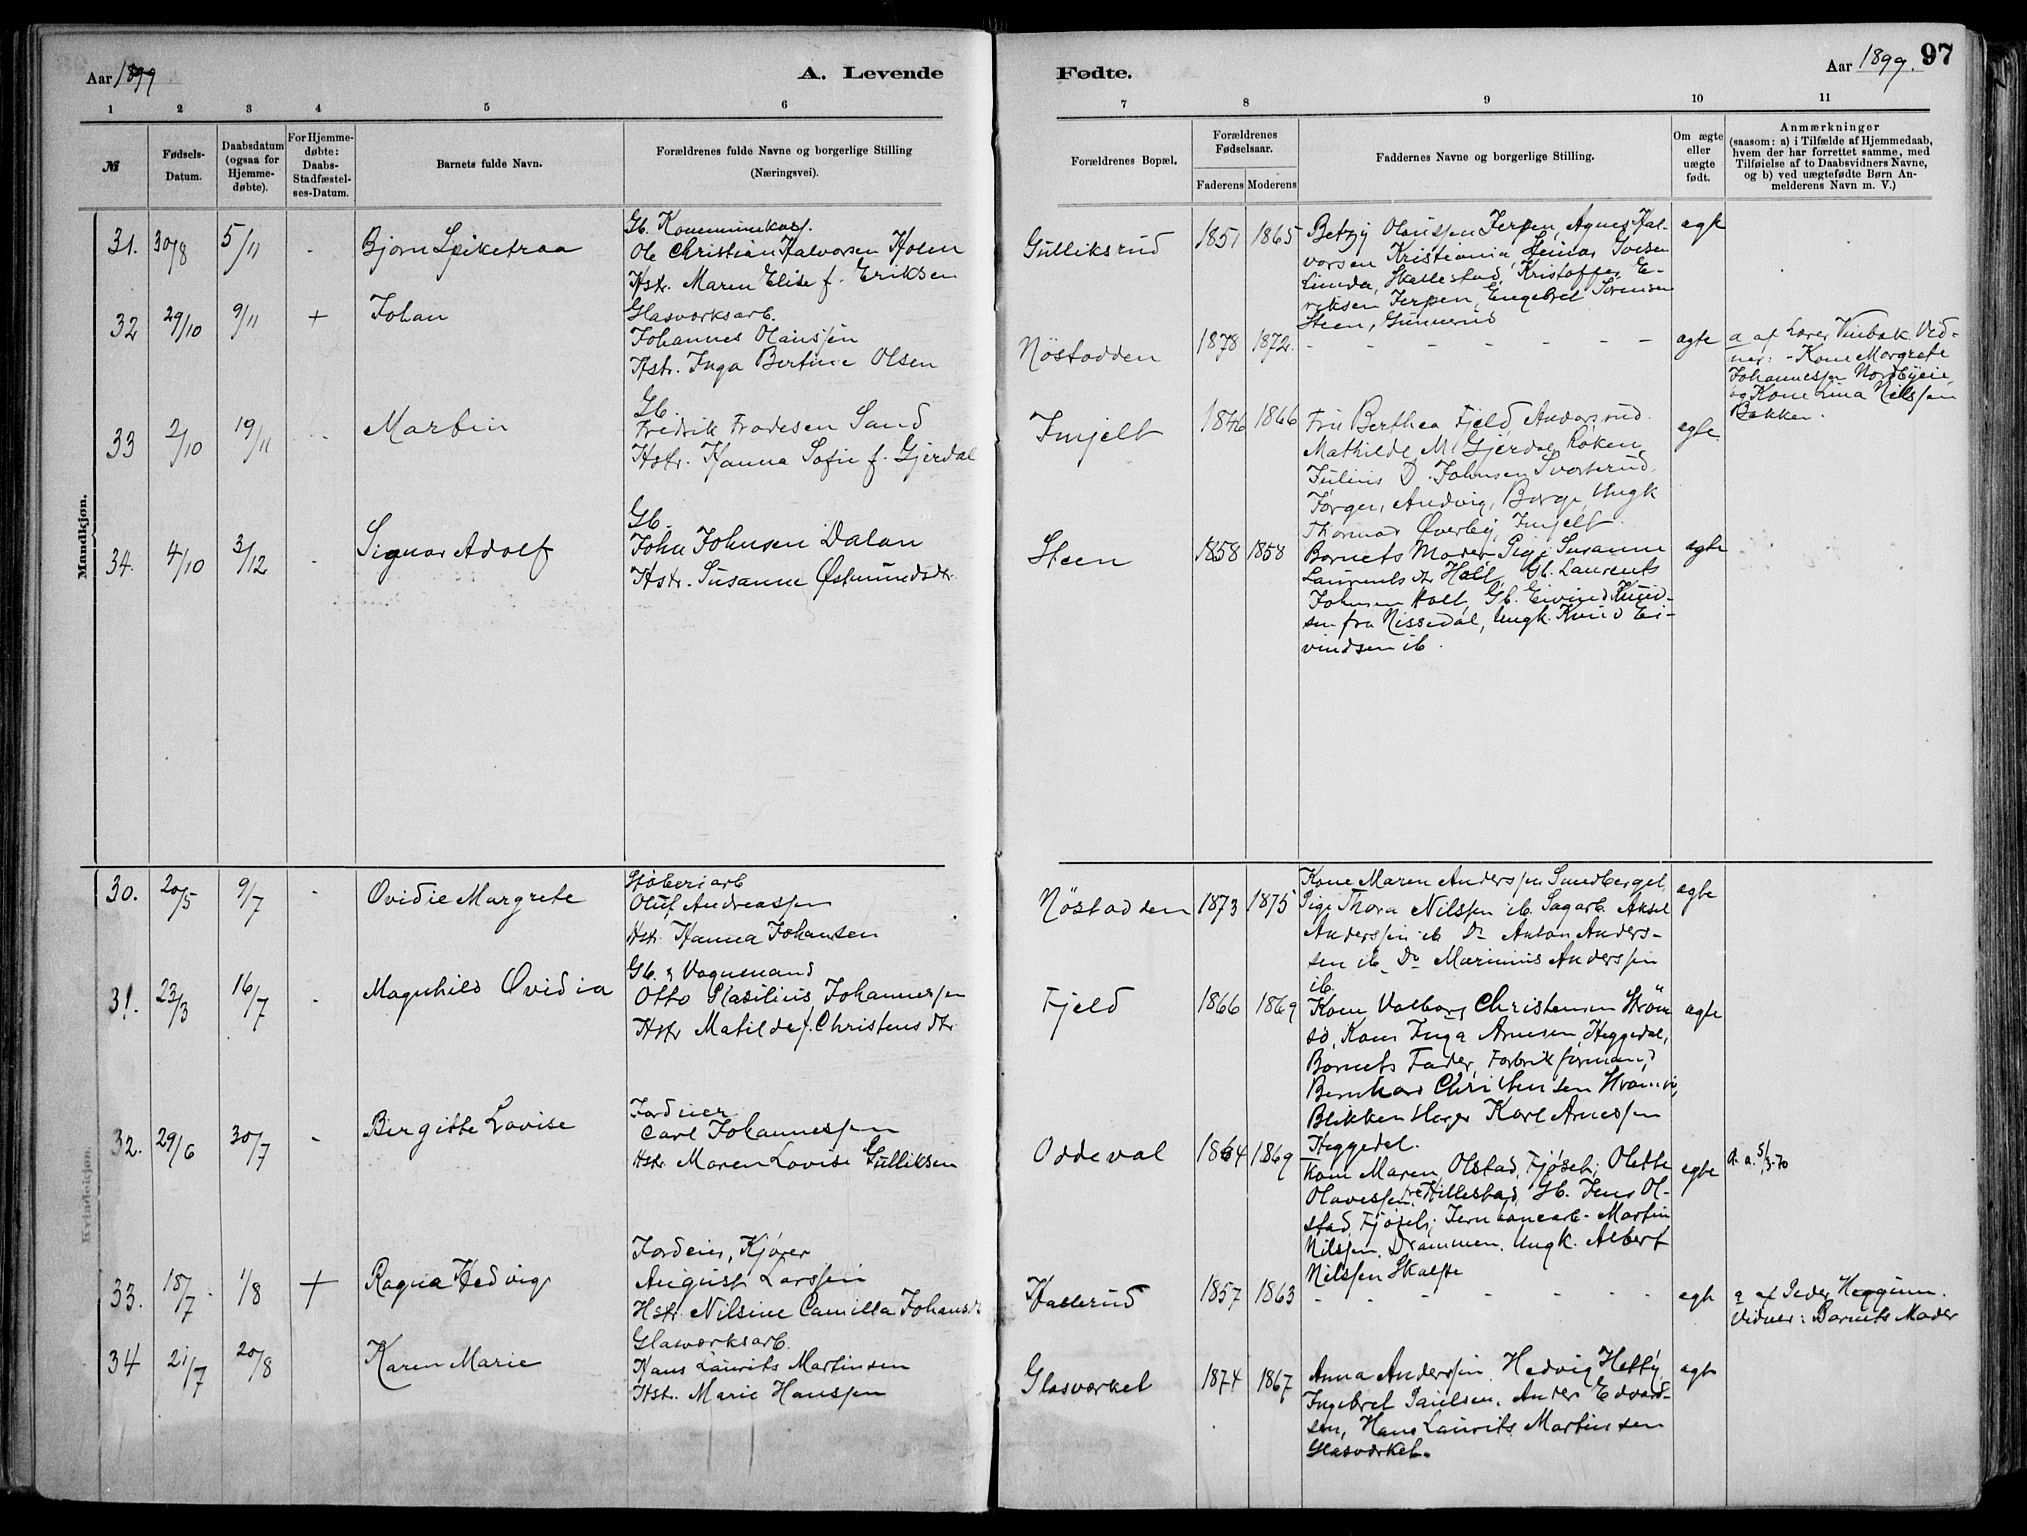 Aar 1899
A. Levende
Fødte.
Aar 1899.
97
1 2 3 4 5 6 7 8 9 10 11
№
Fødsels-
Datum.
Daabsdatum
(ogsaa for
Hjemme-
døbte).
For Hjemme-
døbte:
Daabs-
Stadfæstel-
ses-Datum.
Barnets fulde Navn.
Forældrenes fulde Navne og borgerlige Stilling
(Næringsvei).
Forældrenes Bopæl.
Forældrenes
Fødselsaar.
Faderens Moderens
Faddernes Navne og borgerlige Stilling.
Om ægte
eller
uægte
født.
Anmærkninger
(saasom: a) i Tilfælde af Hjemmedaab,
hvem der har forrettet samme, med
Tilføielse af to Daabsvidners Navne,
og b) ved uægtefødte Børn An-
melderens Navn m. V.)
Mandkjøn.
31. 30/8 5/11 -
Bjørn Spiketraa
Gb. Kommunekass.
Ole Christian Halvorsen Holm
Hstr. Maren Elise f. Eriksen
Gulliksrud
1851 1865
Betzy Olaussen Jerpen, Agnes Hal-
vorsen Kristiania
Linda, Skallestad, Kristoffer E-
riksen Jerpen, Engebret Sørensen
Steen, Gunnerud
ægte
32 29/10 9/11 +
Johan
Glasværksarb.
Johannes Olaussen
Hstr. Inga Bertine Olsen
Nøstodden
1878 1872.
- - - - - - -
ægte
a af Lærer Vinbæk. Vid-
ner: - Kone Margrete
Johannessen Nordbyeie,
og Kone Lina Nilssen
Bakken.
33 2/10 19/11
Martin
Gb.
Fredrik Frodesen Sand
Hstr. Hanna Sofie f. Gjerdal
Injelt
1846 1866
Fru Berthea Fjeld Andorsrud.
Mathilde M. Gjerdal Røken
Julius D. Johnsen
Jørgen Andvig, Borge, Ungk
Thormod Øverby, Injelt.
ægte.
34. 4/10 3/12 -
Signar Adolf
Gb.
John Johnsen Dalan
Hstr. Susanne Østmundsdtr.
Steen
1858 1858
Barnets Moder Pige Susanne
Laurentsdtr Holt, Gb. Laurents
Johnsen Holt, Gb. Eivind Knud-
sen fra Nissedal, Ungk. Knud Ei-
vindsen ib.
ægte
Kvindekjøn.
30. 20/5 9/7 -
Ovidie Margrete
Støberiarb
Oluf Andreassen
Hstr. Hanna Johansen
Nøstodden
1873 1875
Kone Maren Anderssen Sundberget,
Pige Thora Nilssen ib. Sagarb. Aksel
Anderssen ib Do Anton Anders-
sen ib. Do Marinius Anderssen
ib.
ægte
31. 23/3 16/7 -
Magnhild Ovidia
Gb. & Vognmand
Otto Basilius Johannessen
Hstr Matilde f. Christensdtr
Fjeld
1866 1869
Kone Valborg Christensen Strøm
sø, Kone Inga Arnesen, Heggedal,
Barnets Fader, Fabrikformand
Bernhard Christensen
Blikkenslager Karl Arnessen
Heggedal.
ægte
32. 29/6 30/7 -
Birgitte Lovise
Jordeier
Carl Johannessen
Hstr. Maren Lovise Gulliksen
Oddeval
1864 1869
Kone Maren Olstad, Fjøset; Olette
Olavessen Hillestad, Gb. Jens Ol-
stad, Fjøset; Jernbanearb. Martin
Nilssen. Drammen. Ungk. Albert
Nilssen Skalste
ægte
d. a. 5/3-70
33. 18/7 1/8 +
Ragna Hedvig
Jordeier, Kjører
August Larssen
Hstr. Nilsine Camilla Johansdtr
Hallerud
1857 1863
- - - - - - -
ægte
a af Peder Heggum.
Vidner: Barnets Moder
34 21/7 20/8
Karen Marie
Glasværksarb.
Hans Laurits Martinsen
Hstr. Marie Hanssen
Glasværket
1874 1867
Anna Anderssen, Hedvig Hetty,
Ingebret Paulsen, Anders Edvard-
sen, Hans Laurits Martinsen
Glasværket.
ægte